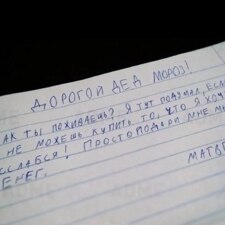 ДОРОГОЙ ДЕД МОРОЗ!
КАК ТЫ ПОЖИВАЕШЬ? Я ТУТ ПОДУМАЛ, ЕСЛ
НЕ МОЖЕШЬ КУПИТЬ ТО, ЧТО Я ХОЧ
ССЛАБСЯ! ПРОСТО ПОДАРИ МНЕ
ЕНЕГ.
МАТВ